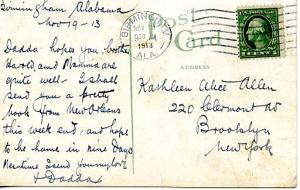 Birmingham Alabama
Nov 19-13
Dadda hopes you brother
Harold, and Mamma are
quite well. I shall
send you a pretty
book from New Orleans
this week end, and hope
to be home in nine Days
Meantime I send you my love
+ Dadda
Post
Card
ADDRESS
BIRMINGHAM
NOV
1913
ALA.
Kathleen Alice Allen
220 Clermont Av
Brooklyn
New York